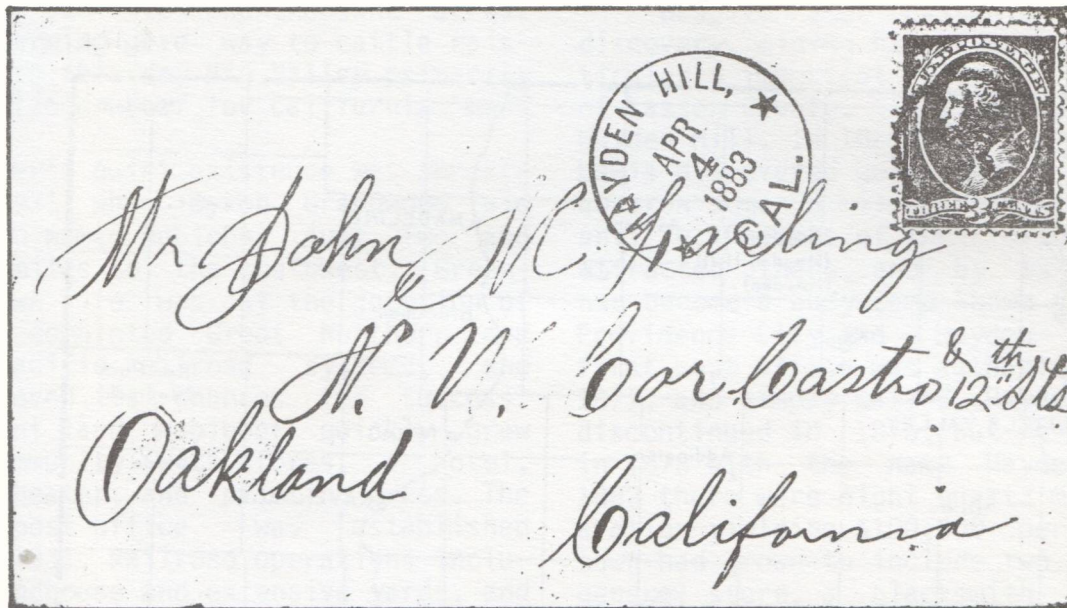 HAYDEN HILL,
APR
4
1883
CAL.
U.S. POSTAGE
THREE CENTS
Mr John M.
N. W. Cor. Castro & 12th Sts.
Oakland
California